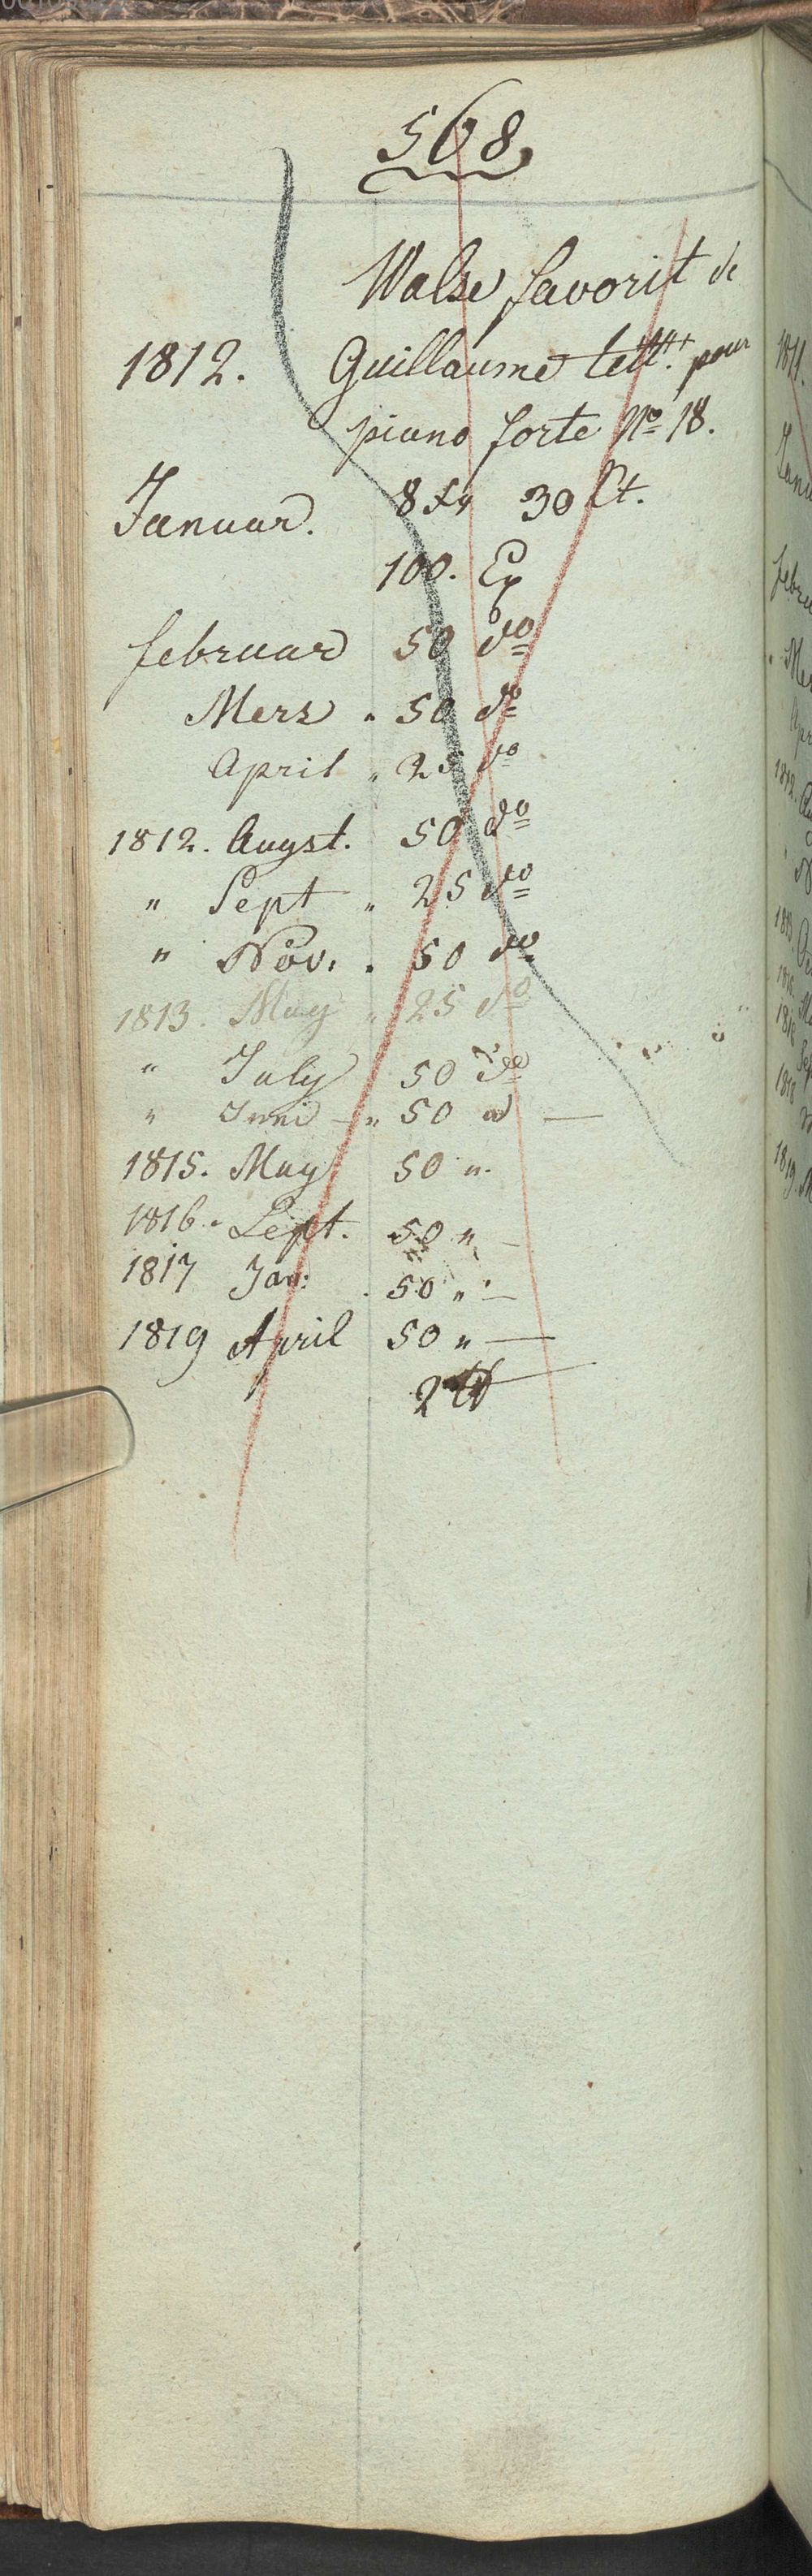 568
Walse favorit de
1812. Guillaume tell. pour
piano forte No 18.
Januar. 8 Xr 30 Ct.
100. Ex
februar 50 do
Merz " 50 do
April " 25 do
1812. Augst. 50 do
" Sept " 25 do
" Nov. " 50 do
1813. May " 25 do
" July 50 do
" Juni — " 50 do —
1815. May 50 ".
1816. Sept. 50 " —
1817 Jan: . 50 " —
1819 April 50 " —